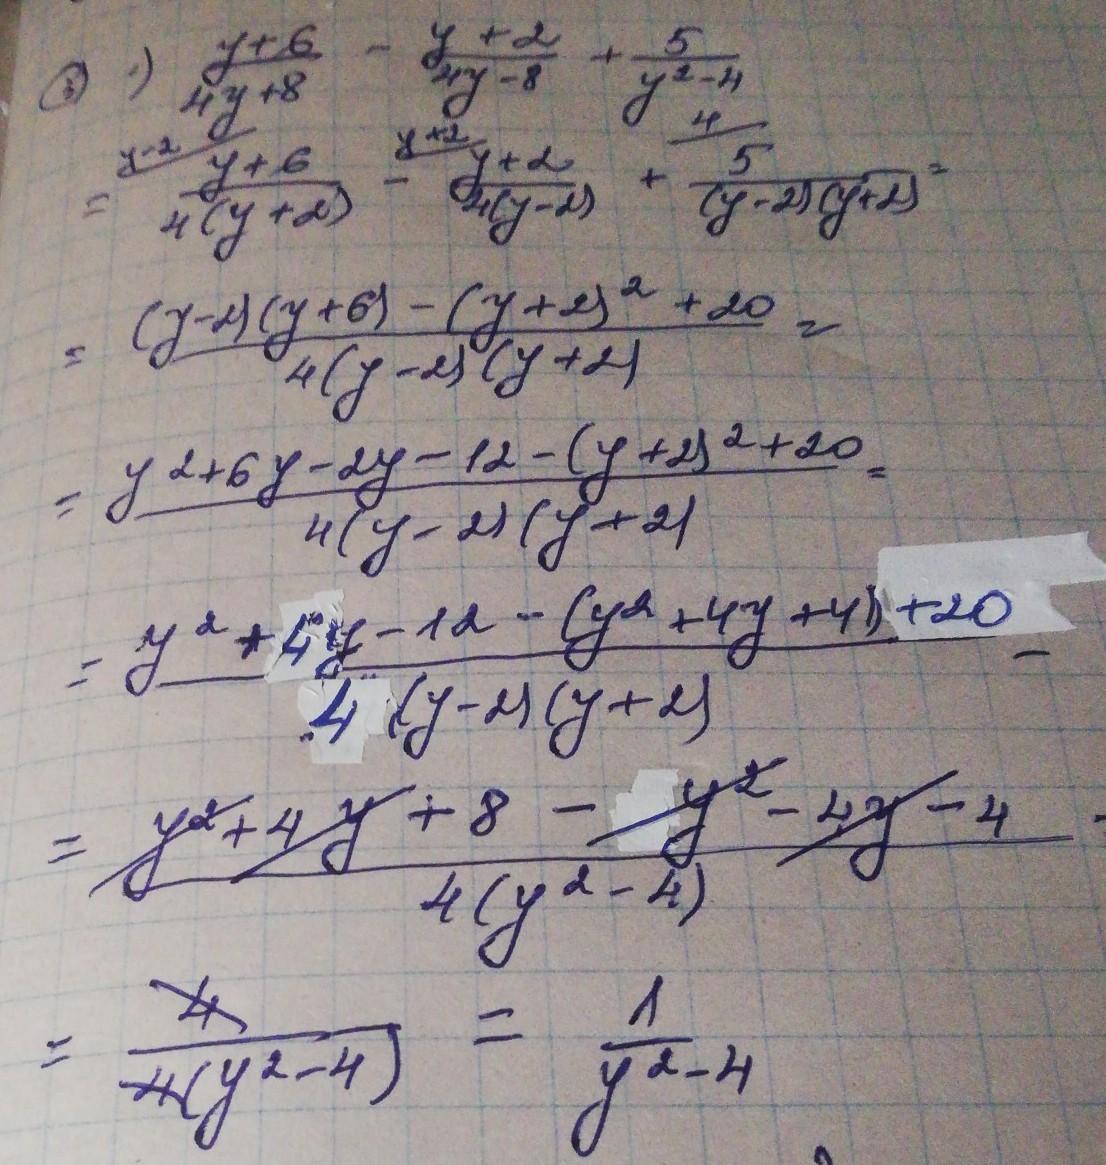 ③ 1) (y+6)/(4y+8) - (y+2)/(4y-8) + 5/(y²-4)
= y-2/ (y+6)/(4(y+2)) - y+2/ (y+2)/(4(y-2)) + 4/ 5/((y-2)(y+2)) =
= ((y-2)(y+6)-(y+2)²+20)/(4(y-2)(y+2)) =
= (y²+6y-2y-12-(y+2)²+20)/(4(y-2)(y+2)) =
= (y²+4y-12-(y²+4y+4)+20)/(4(y-2)(y+2)) -
= (y²+4y+8-y²-4y-4)/(4(y²-4)) -
= 4/(4(y²-4)) = 1/(y²-4)